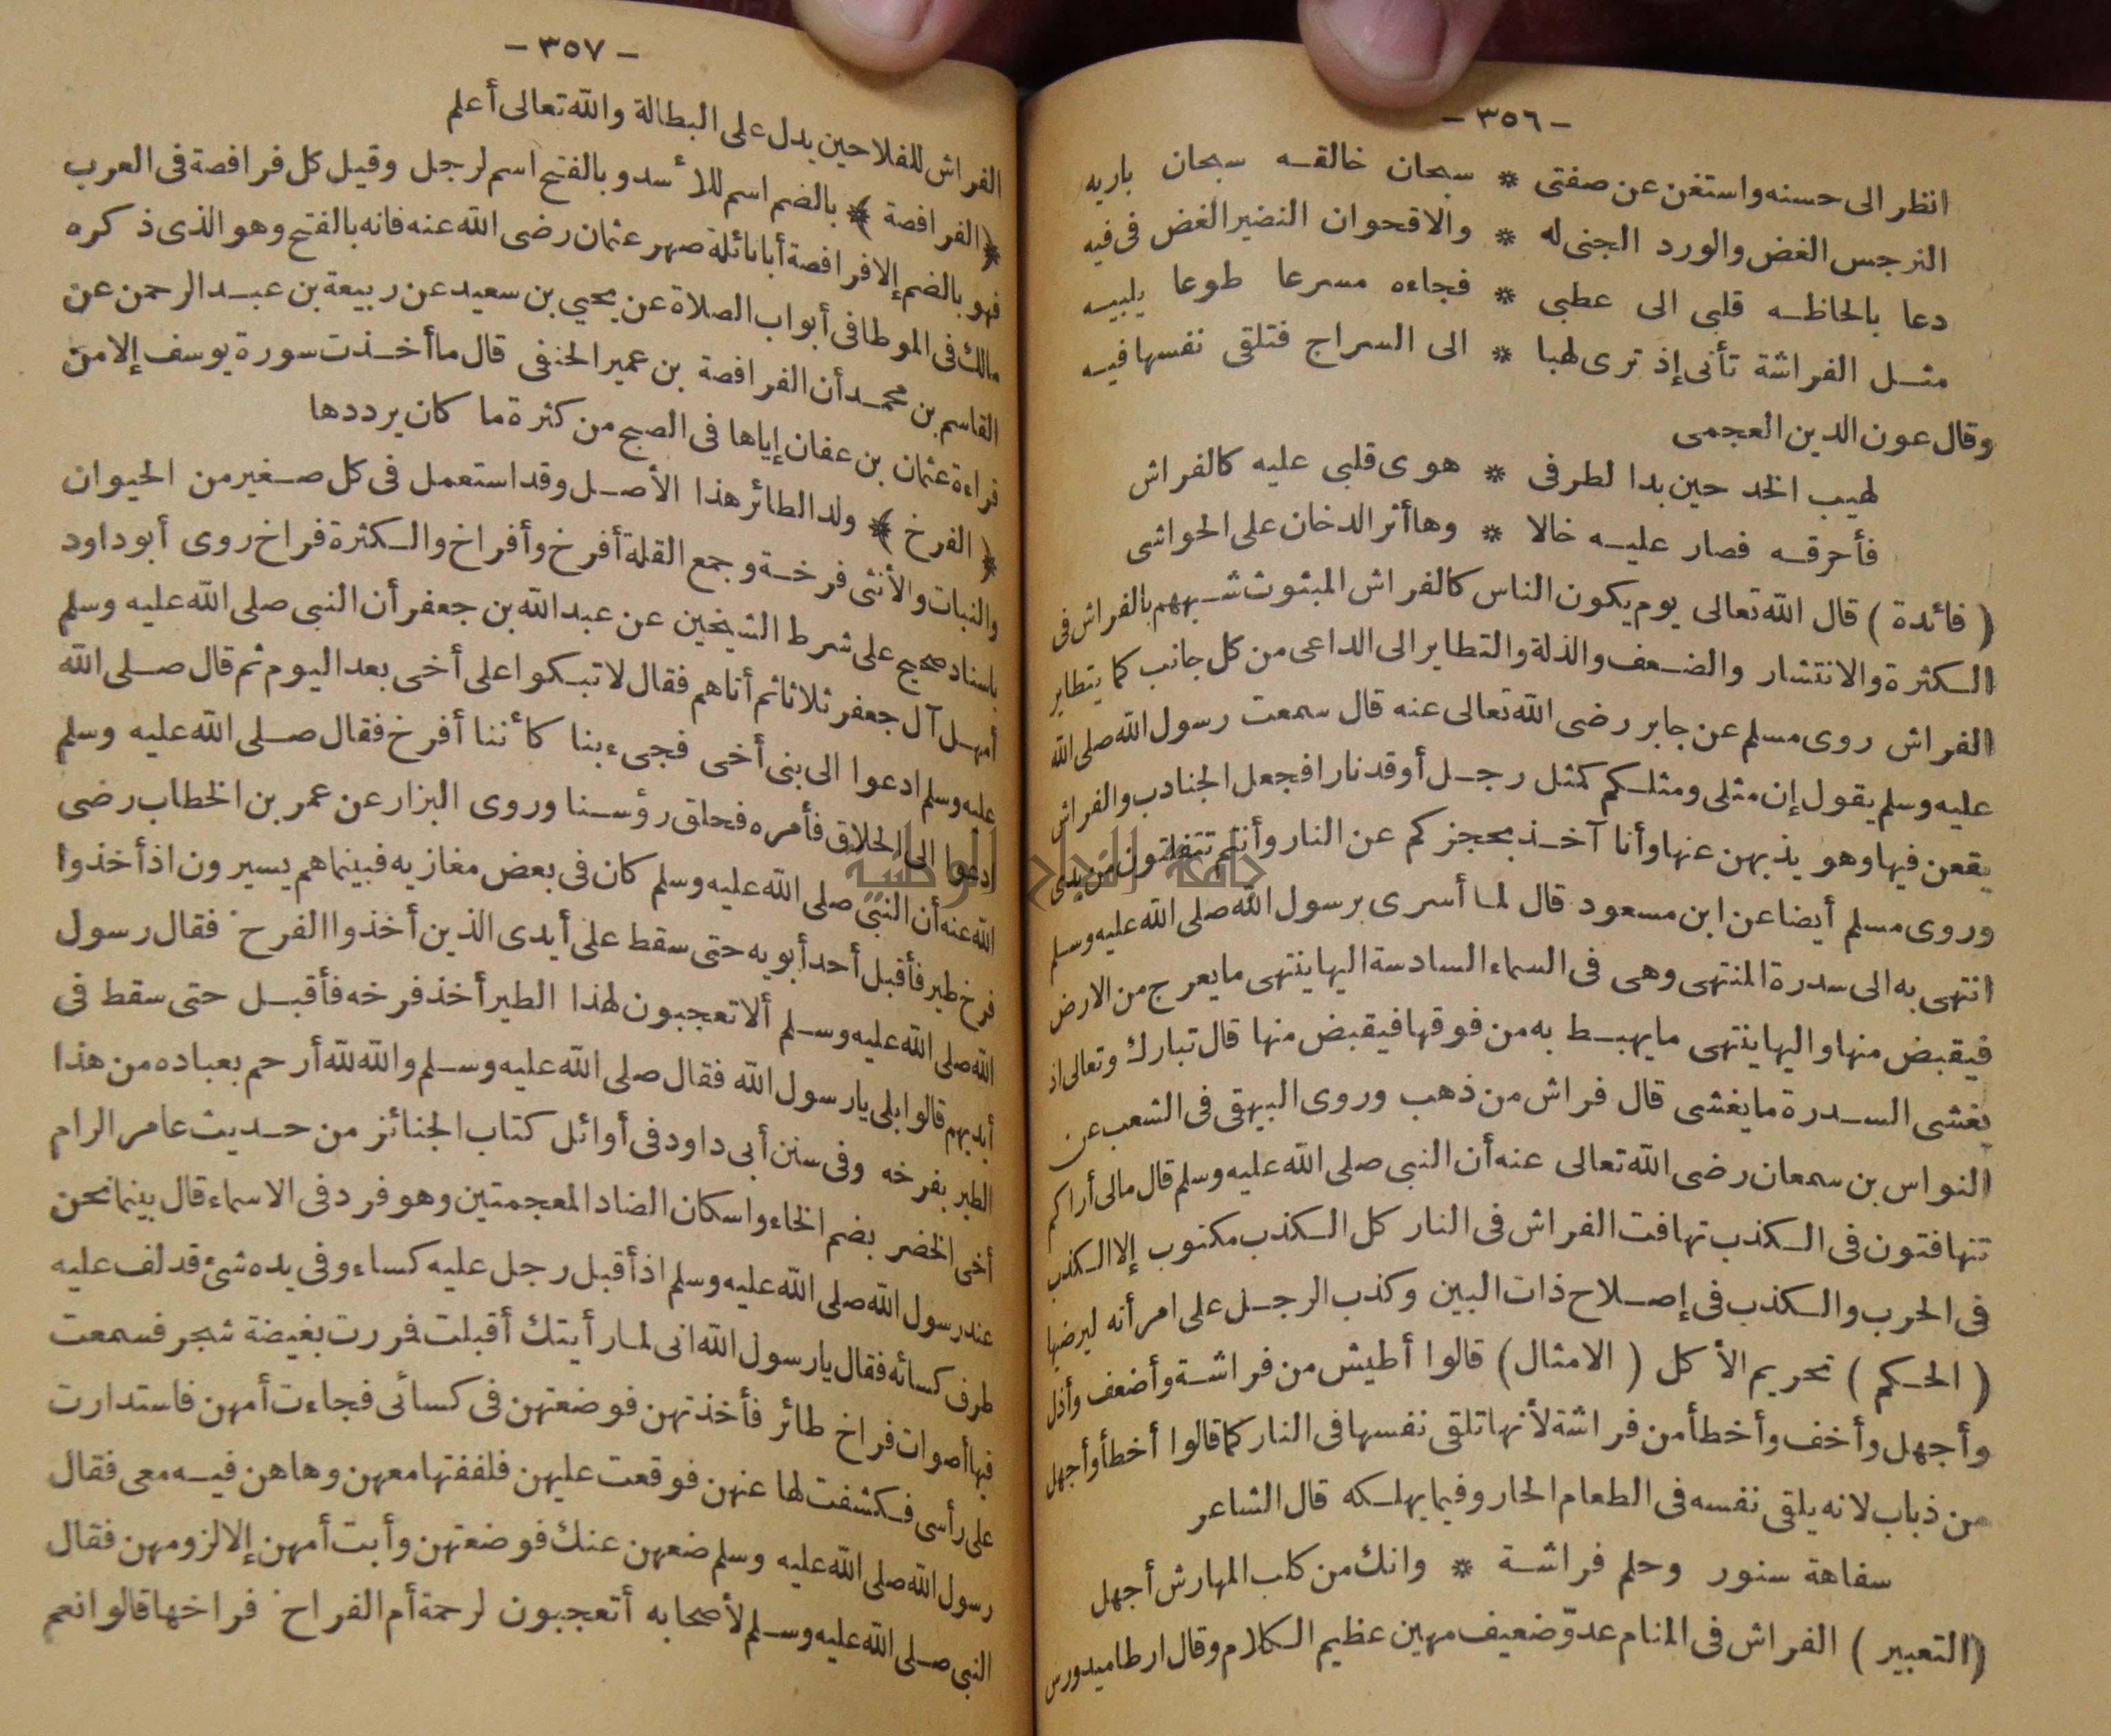 - ٣٥٦ -
انظر الى حسنه واستغن عن صفتى * سبحان خالقه سبحان باريه
النرجس الغض والورد الجنى له * والاقحوان النضير الغض فى فيه
دعا بالحاظه قلبى الى عطبى * فجاءه مسرعا طوعا يلبيه
مثل الفراشة تأتى إذ ترى لهبا * الى السراج فتلقى نفسها فيه
وقال عون الدين العجمى
لهيب الخد حين بدا لطرفى * هوى قلبى عليه كالفراش
فأحرقه فصار عليه خالا * وها أثر الدخان على الحواشى
( فائدة ) قال الله تعالى يوم يكون الناس كالفراش المبثوث شبههم بالفراش فى
الكثرة والانتشار والضعف والذلة والتطاير الى الداعى من كل جانب كما يتطاير
الفراش روى مسلم عن جابر رضى الله تعالى عنه قال سمعت رسول الله صلى الله
عليه وسلم يقول إن مثلى ومثلكم كمثل رجل أوقد نارا فجعل الجنادب والفراش
يقعن فيها وهو يذبهن عنها وأنا آخذ بحجزكم عن النار وأنتم تتفلتون من يدى
وروى مسلم أيضا عن ابن مسعود قال لما أسرى برسول الله صلى الله عليه وسلم
انتهى به الى سدرة المنتهى وهى فى السماء السادسة اليها ينتهى ما يعرج من الارض
فيقبض منها واليها ينتهى ما يهبط به من فوقها فيقبض منها قال تبارك وتعالى اذ
يغشى السدرة ما يغشى قال فراش من ذهب وروى البيهقى فى الشعب عن
النواس بن سمعان رضى الله تعالى عنه أن النبى صلى الله عليه وسلم قال مالى أراكم
تتهافتون فى الكذب تهافت الفراش فى النار كل الكذب مكتوب إلا الكذب
فى الحرب والكذب فى إصلاح ذات البين وكذب الرجل على امرأته ليرضيها
( الحكم ) تحريم الأكل ( الامثال ) قالوا أطيش من فراشة وأضعف وأذل
وأجهل وأخف وأخطأ من فراشة لأنها تلقى نفسها فى النار كما قالوا أخطأ وأجهل
من ذباب لانه يلقى نفسه فى الطعام الحار وفيما يهلكه قال الشاعر
سفاهة سنور وحلم فراشة * وانك من كلب المهارش أجهل
( التعبير ) الفراش فى المنام عدوّ ضعيف مهين عظيم الكلام وقال ارطاميدورس
- ٣٥٧ -
الفراش للفلاحين يدل على البطالة والله تعالى أعلم
﴿ الفرافصة ﴾ بالضم اسم للأسد وبالفتح اسم لرجل وقيل كل فرافصة فى العرب
فهو بالضم إلا فرافصة أبا نائلة صهر عثمان رضى الله عنه فانه بالفتح وهو الذى ذكره
مالك فى الموطا فى أبواب الصلاة عن يحيى بن سعيد عن ربيعة بن عبد الرحمن عن
القاسم بن محمد أن الفرافصة بن عمير الحنفى قال ما أخذت سورة يوسف إلا من
قراءة عثمان بن عفان إياها فى الصبح من كثرة ما كان يرددها
﴿ الفرخ ﴾ ولد الطائر هذا الأصل وقد استعمل فى كل صغير من الحيوان
والنبات والأنثى فرخة وجمع القلة أفرخ وأفراخ والكثرة فراخ روى أبو داود
باسناد صحيح على شرط الشيخين عن عبد الله بن جعفر أن النبى صلى الله عليه وسلم
أمهل آل جعفر ثلاثا ثم أتاهم فقال لا تبكوا على أخى بعد اليوم ثم قال صلى الله
عليه وسلم ادعوا الى بنى أخى فجىء بنا كأننا أفرخ فقال صلى الله عليه وسلم
ادعوا الى الحلاق فأمره فحلق رؤسنا وروى البزار عن عمر بن الخطاب رضى
الله عنه أن النبى صلى الله عليه وسلم كان فى بعض مغازيه فبينما هم يسيرون اذ أخذوا
فرخ طير فأقبل أحد أبويه حتى سقط على أيدى الذين أخذوا الفرخ فقال رسول
الله صلى الله عليه وسلم ألا تعجبون لهذا الطير أخذ فرخه فأقبل حتى سقط فى
أيديهم قالوا بلى يا رسول الله فقال صلى الله عليه وسلم والله لله أرحم بعباده من هذا
الطير بفرخه وفى سنن أبى داود فى أوائل كتاب الجنائز من حديث عامر الرام
أخى الخضر بضم الخاء واسكان الضاد المعجمتين وهو فرد فى الاسماء قال بينما نحن
عند رسول الله صلى الله عليه وسلم اذ أقبل رجل عليه كساء وفى يده شئ قد لف عليه
طرف كسائه فقال يا رسول الله انى لما رأيتك أقبلت فمررت بغيضة شجر فسمعت
فيها أصوات فراخ طائر فأخذتهن فوضعتهن فى كسائى فجاءت أمهن فاستدارت
على رأسى فكشفت لها عنهن فوقعت عليهن فلففتها معهن وها هن فيه معى فقال
رسول الله صلى الله عليه وسلم ضعهن عنك فوضعتهن وأبت أمهن إلا لزومهن فقال
النبى صلى الله عليه وسلم لأصحابه أتعجبون لرحمة أم الفراخ فراخها قالوا نعم
جامعة النجاح الوطنية